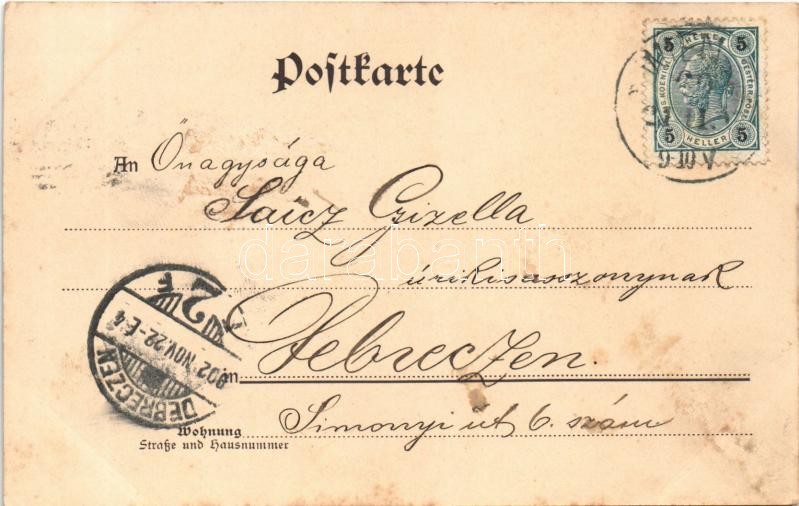 Postkarte
5 HELLER 5
5 HELLER 5
9-10 V
An Önagysága
Saicz Gizella
úrikisasszonynak
Debreczen.
in
Simonyi út 6. szám
Wohnung
Straße und Hausnummer
DEBRECZEN
902 NOV. 22-É.4
2 F
darabanth